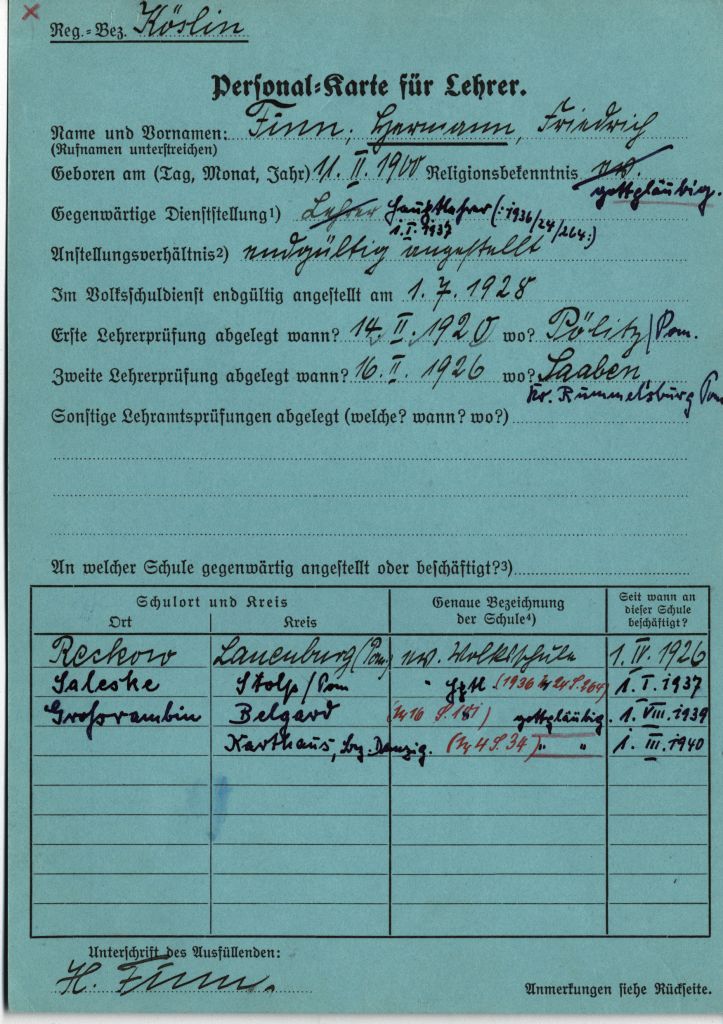 Reg.-Bez. Köslin
Personal-Karte für Lehrer.
Name und Vornamen: Finn, Hermann, Friedrich
(Rufnamen unterstreichen)
Geboren am (Tag, Monat, Jahr) 11. II. 1900 Religionsbekenntnis ev.
gottgläubig.
Gegenwärtige Dienststellung¹) Lehrer Hauptlehrer (: 1936/24/264:)
1. I. 1937
Anstellungsverhältnis²) endgültig angestellt
Im Volksschuldienst endgültig angestellt am 1. 7. 1928
Erste Lehrerprüfung abgelegt wann? 14. II. 1920 wo? Pölitz/Pom.
Zweite Lehrerprüfung abgelegt wann? 16. II. 1926 wo? Saaben
Kr. Rummelsburg Pom
Sonstige Lehramtsprüfungen abgelegt (welche? wann? wo?)
An welcher Schule gegenwärtig angestellt oder beschäftigt?³)
Schulort und Kreis Genaue Bezeichnung der Schule⁴) Seit wann an dieser Schule beschäftigt?
Ort Kreis
Reckow Lauenburg (Pom.) ev. Volksschule 1. IV. 1926
Saleske Stolp/Pom " Hptl. (1936 24 S. 264) 1. I. 1937
Großrambin Belgard 16 S. 181) gottgläubig 1. VIII. 1939
Karthaus, Danzig. 4 S. 34) " " 1. III. 1940
Unterschrift des Ausfüllenden:
H. Finn.
Anmerkungen siehe Rückseite.